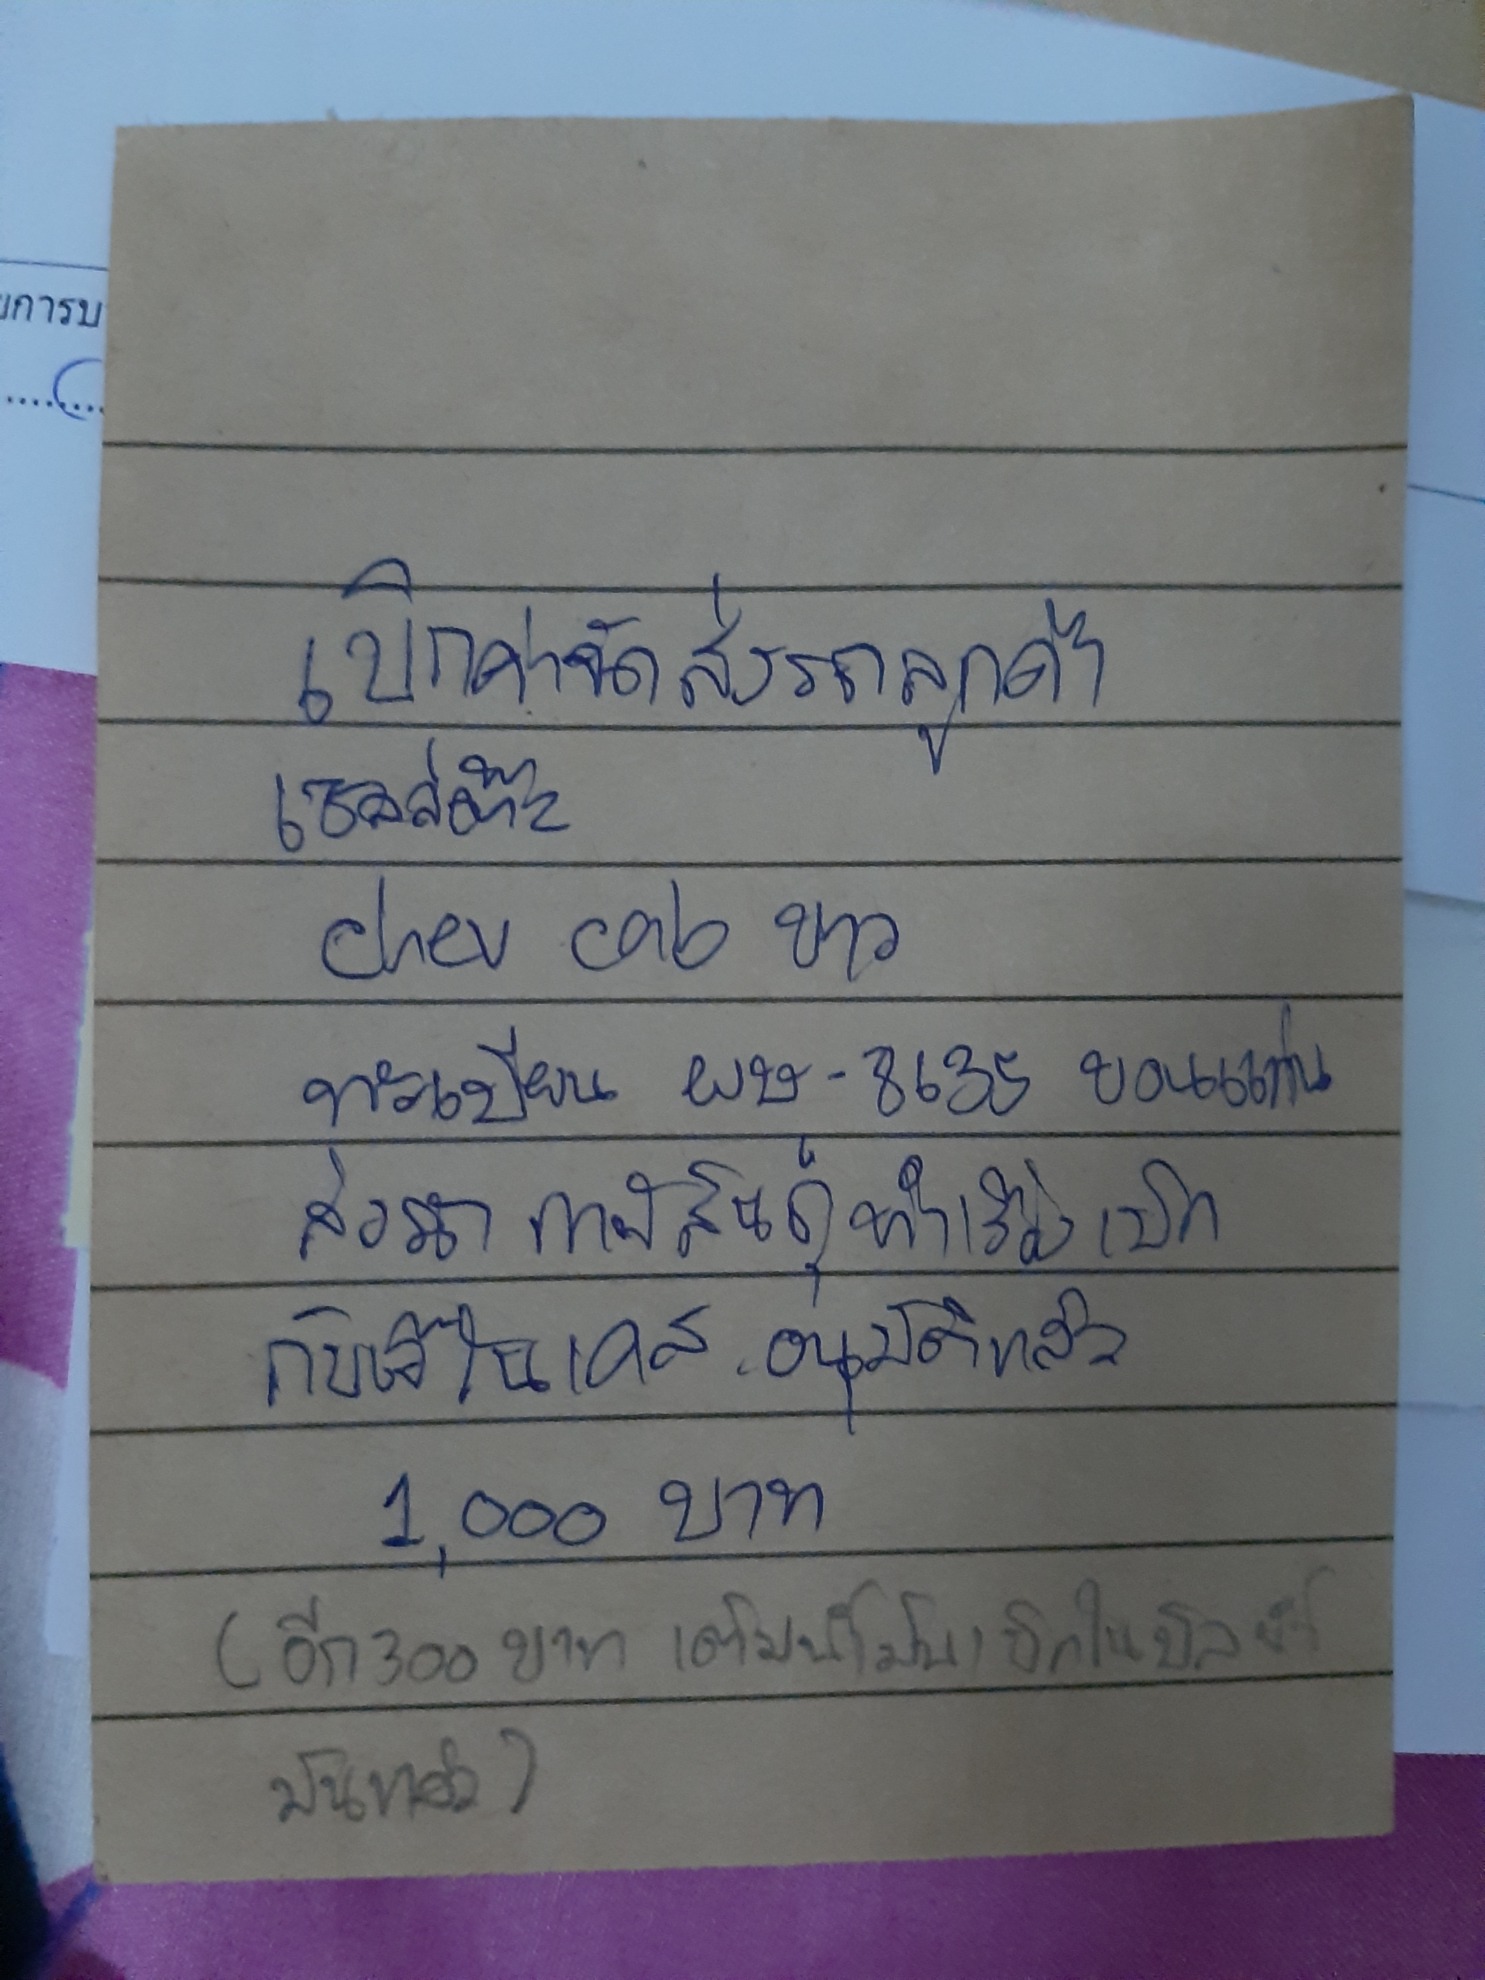 ยการบ
เบิกค่าจัดส่งรถลูกค้า
เซลล์ต๊ะ
chev cab ขาว
ทะเบียน ผษ-8635 ขอนแก่น
ส่งรถ กาฬสินธุ์ ทำเรื่องเบิก
กับเจ๊ในเคส อนุมัติแล้ว
1,000 บาท
(อีก 300 บาท เติมน้ำมันเบิกในบิลน้ำ
มันแล้ว)